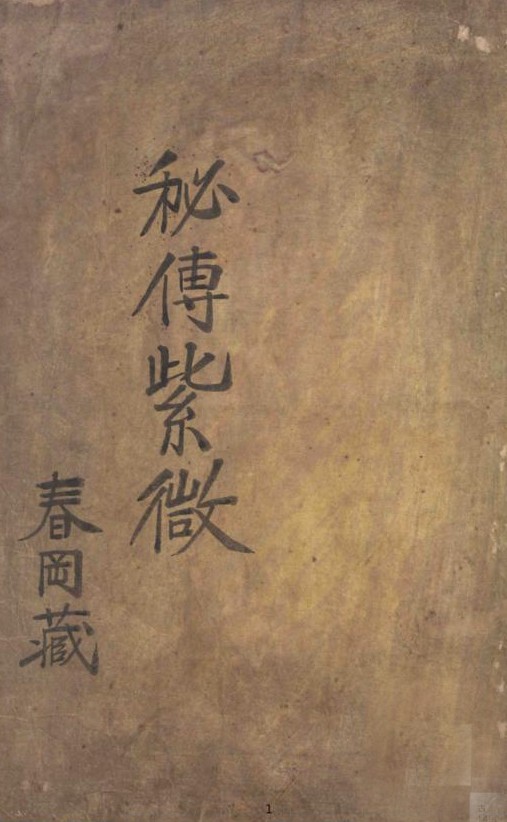 秘傳紫微
春岡藏
1